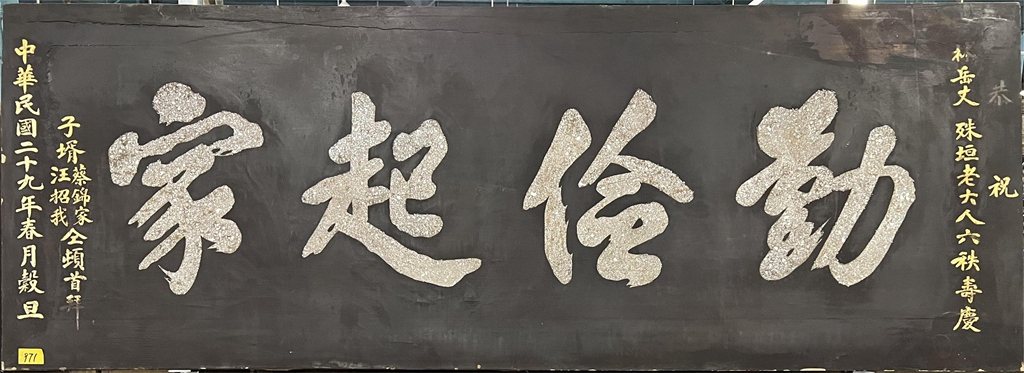 恭祝
岳丈 殊垣老大人六秩壽慶
勤儉起家
子壻 蔡錦家 汪招我 仝頓首拜
中華民國二十九年春月穀旦
971